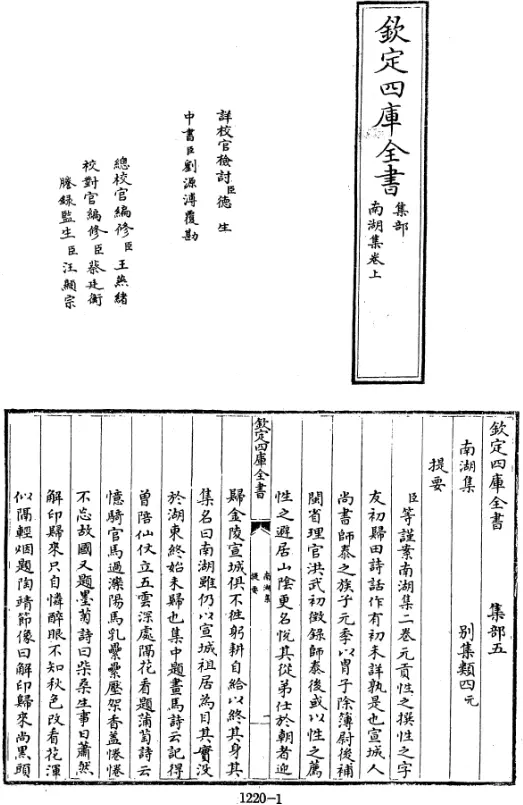 欽定四庫全書
集部
南湖集卷上
詳校官檢討臣德生
中書臣劉源溥覆勘
總校官編修臣王燕緒
校對官編修臣蔡廷衡
謄錄監生臣汪顯宗
欽定四庫全書
集部五
南湖集
別集類四元
提要
臣等謹案南湖集二卷元貢性之撰性之字
友初歸田詩話作有初未詳孰是也宣城人
尚書師泰之族子元季以胄子除簿尉後補
閩省理官洪武初徵錄師泰後或以性之薦
性之避居山陰更名悅其從弟仕於朝者迎
欽定四庫全書
南湖集
提要
一
歸金陵宣城俱不往躬耕自給以終其身其
集名曰南湖雖仍以宣城祖居為目其實沒
於湖東終始未歸也集中題畫馬詩云記得
曾陪仙仗立五雲深處隔花看題蒲萄詩云
憶騎官馬過灤陽馬乳纍纍壓架香蓋惓惓
不忘故國又題墨菊詩曰柴桑生事日蕭然
解印歸來只自憐醉眼不知秋色改看花渾
似隔輕烟題陶靖節像曰解印歸來尚黑頭
1220-1